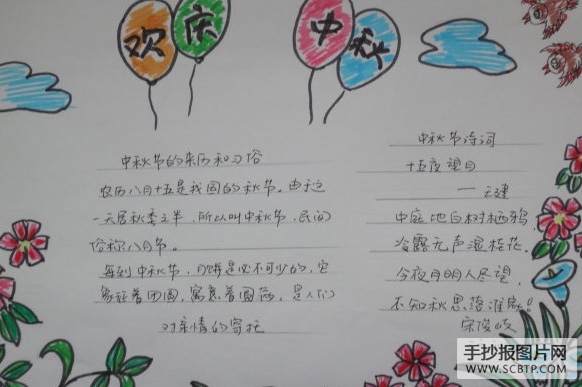 欢庆中秋
中秋节的来历和习俗
农历八月十五是我国的秋节。由于这
一天居秋季之半,所以叫中秋节,民间
俗称八月节。
每到中秋节,月饼是必不可少的,它
象征着团圆,寓意着圆满,是人们
对亲情的寄托
中秋节诗词
十五夜望月
一 王建
中庭地白树栖鸦
冷露无声湿桂花,
今夜月明人尽望,
不知秋思落谁家!
宋俊岐
手抄报图片网
WWW.SCBTP.COM